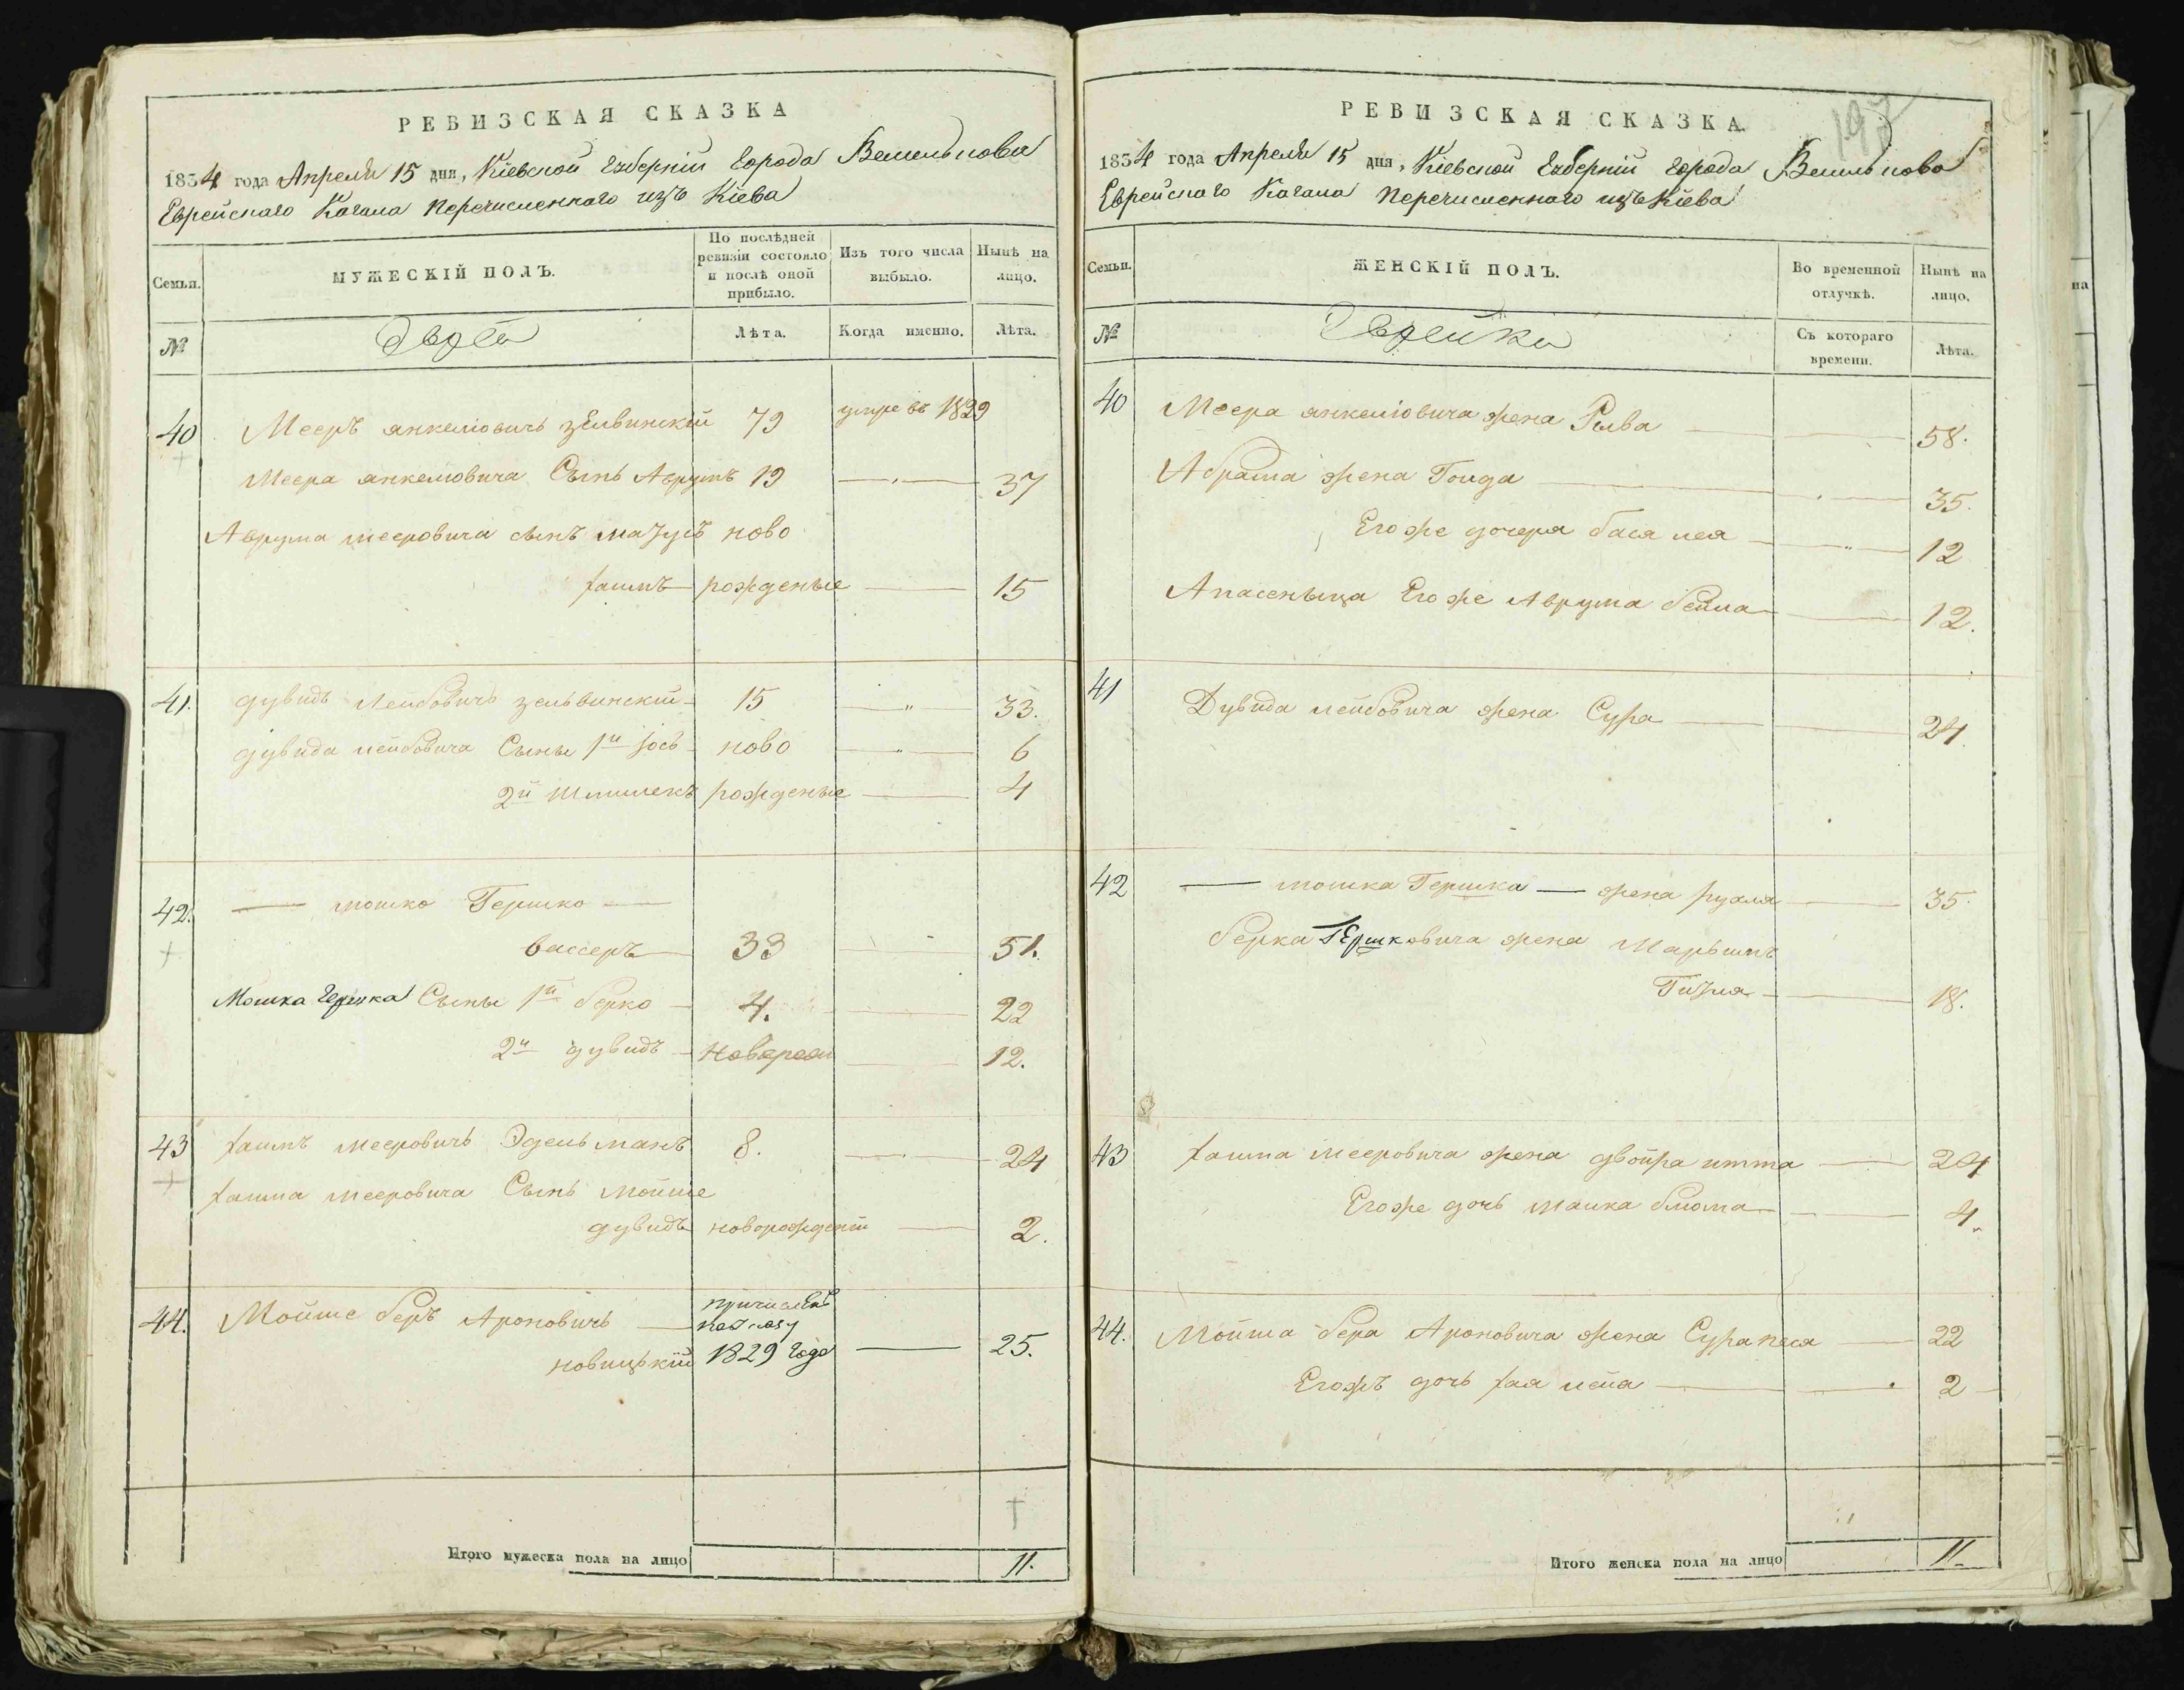 РЕВИЗСКАЯ СКАЗКА
1834 года Апреля 15 дня, Кіевской Губерніи Города Василькова
Еврейскаго Кагала перечисленнаго изъ Кіева
Семьи.
МУЖЕСКІЙ ПОЛЪ.
По послѣдней ревизіи состояло и послѣ оной прибыло.
Изъ того числа выбыло.
Нынѣ на лицо.
№
Евреи
Лѣта.
Когда именно.
Лѣта.
40 Мееръ янкеліовичъ зелвинскій 79 умре въ 1829
Меера янкеліовича Сынъ Аврумъ 19 37
Аврума мееровича сынъ мазусъ ново
хаимъ рожденые 15
41. дувидъ Лейбовичъ зельвинскій 15 33.
дувида лейбовича Сыны 1й іось ново 6
2й Шмилекъ рожденые 4
42. мошко Гершко
вассеръ 33 51.
Мошка Гершка Сыны 1й берко 4. 22
2й дувидъ 12.
43 хаимъ мееровичъ Эдельманъ 8. 24
хаима мееровича Сынъ мойше
дувидъ новорожденій 2.
44. Мойше беръ Ароновичъ причисленъ
новицькій 1829 года 25.
Итого мужеска пола на лицо 11.
197
РЕВИЗСКАЯ СКАЗКА
1834 года Апреля 15 дня, Кіевской Губерніи города Василькова
Еврейскаго Кагала перечисленнаго изъ Кіева
Семьи.
ЖЕНСКІЙ ПОЛЪ.
Во временной отлучкѣ.
Нынѣ на лицо.
№
Еврейки
Съ котораго времени.
Лѣта.
40 Меера янкеліовича жена Рыва 58.
Абрама жена Голда 35.
Егоже дочеря бася лея 12
Апасеньица Егоже Аврума бейла 12.
41 Дувида лейбовича жена Сура 24.
42 мошка Гершка жена рухля 35.
берка Гершковича жена Марьимъ
Гизля 18.
43 хаима мееровича жена двойра итта 24
Егоже дочь малка блюма 4.
44. Мойша бера Ароновича жена Сура песя 22
Егожъ дочь хая лейа 2
Итого женска пола на лицо 11.